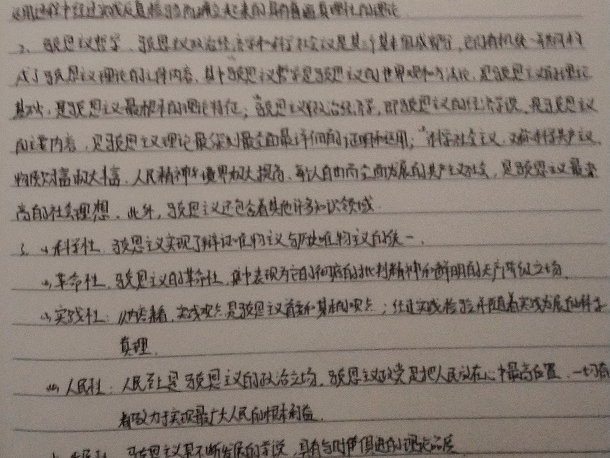 过程中经过实践反复检验而确立起来的具有普遍真理性的理论
2、马克思主义哲学、马克思主义政治经济学和科学社会主义是其三个基本组成部分，它们有机统一并共同构
成了马克思主义理论的主体内容。其中马克思主义哲学是马克思主义的世界观和方法论，是马克思主义的理论
基础，是马克思主义最根本的理论特征；马克思主义政治经济学，即马克思主义的经济学说，是马克思主义
的主要内容，是马克思主义理论最深刻最全面最详细的证明和运用；科学社会主义，又称科学共产主义，
物质财富极大丰富、人民精神境界极大提高、每个人自由而全面发展的共产主义社会，是马克思主义最崇
高的社会理想。此外，马克思主义还包含着其他许多知识领域
3、(1)科学性：马克思主义实现了辩证唯物主义与历史唯物主义的统一。
(2)革命性：马克思主义的革命性，集中表现为它的彻底的批判精神和鲜明的无产阶级立场。
(3)实践性：实践观点是马克思主义首要和基本的观点；经过实践检验并随着实践发展的科学
真理。
(4)人民性：人民至上是马克思主义的政治立场，马克思主义政党是把人民放在心中最高位置，一切
都致力于实现最广大人民的根本利益
马克思主义是不断发展的学说，具有与时俱进的理论品质